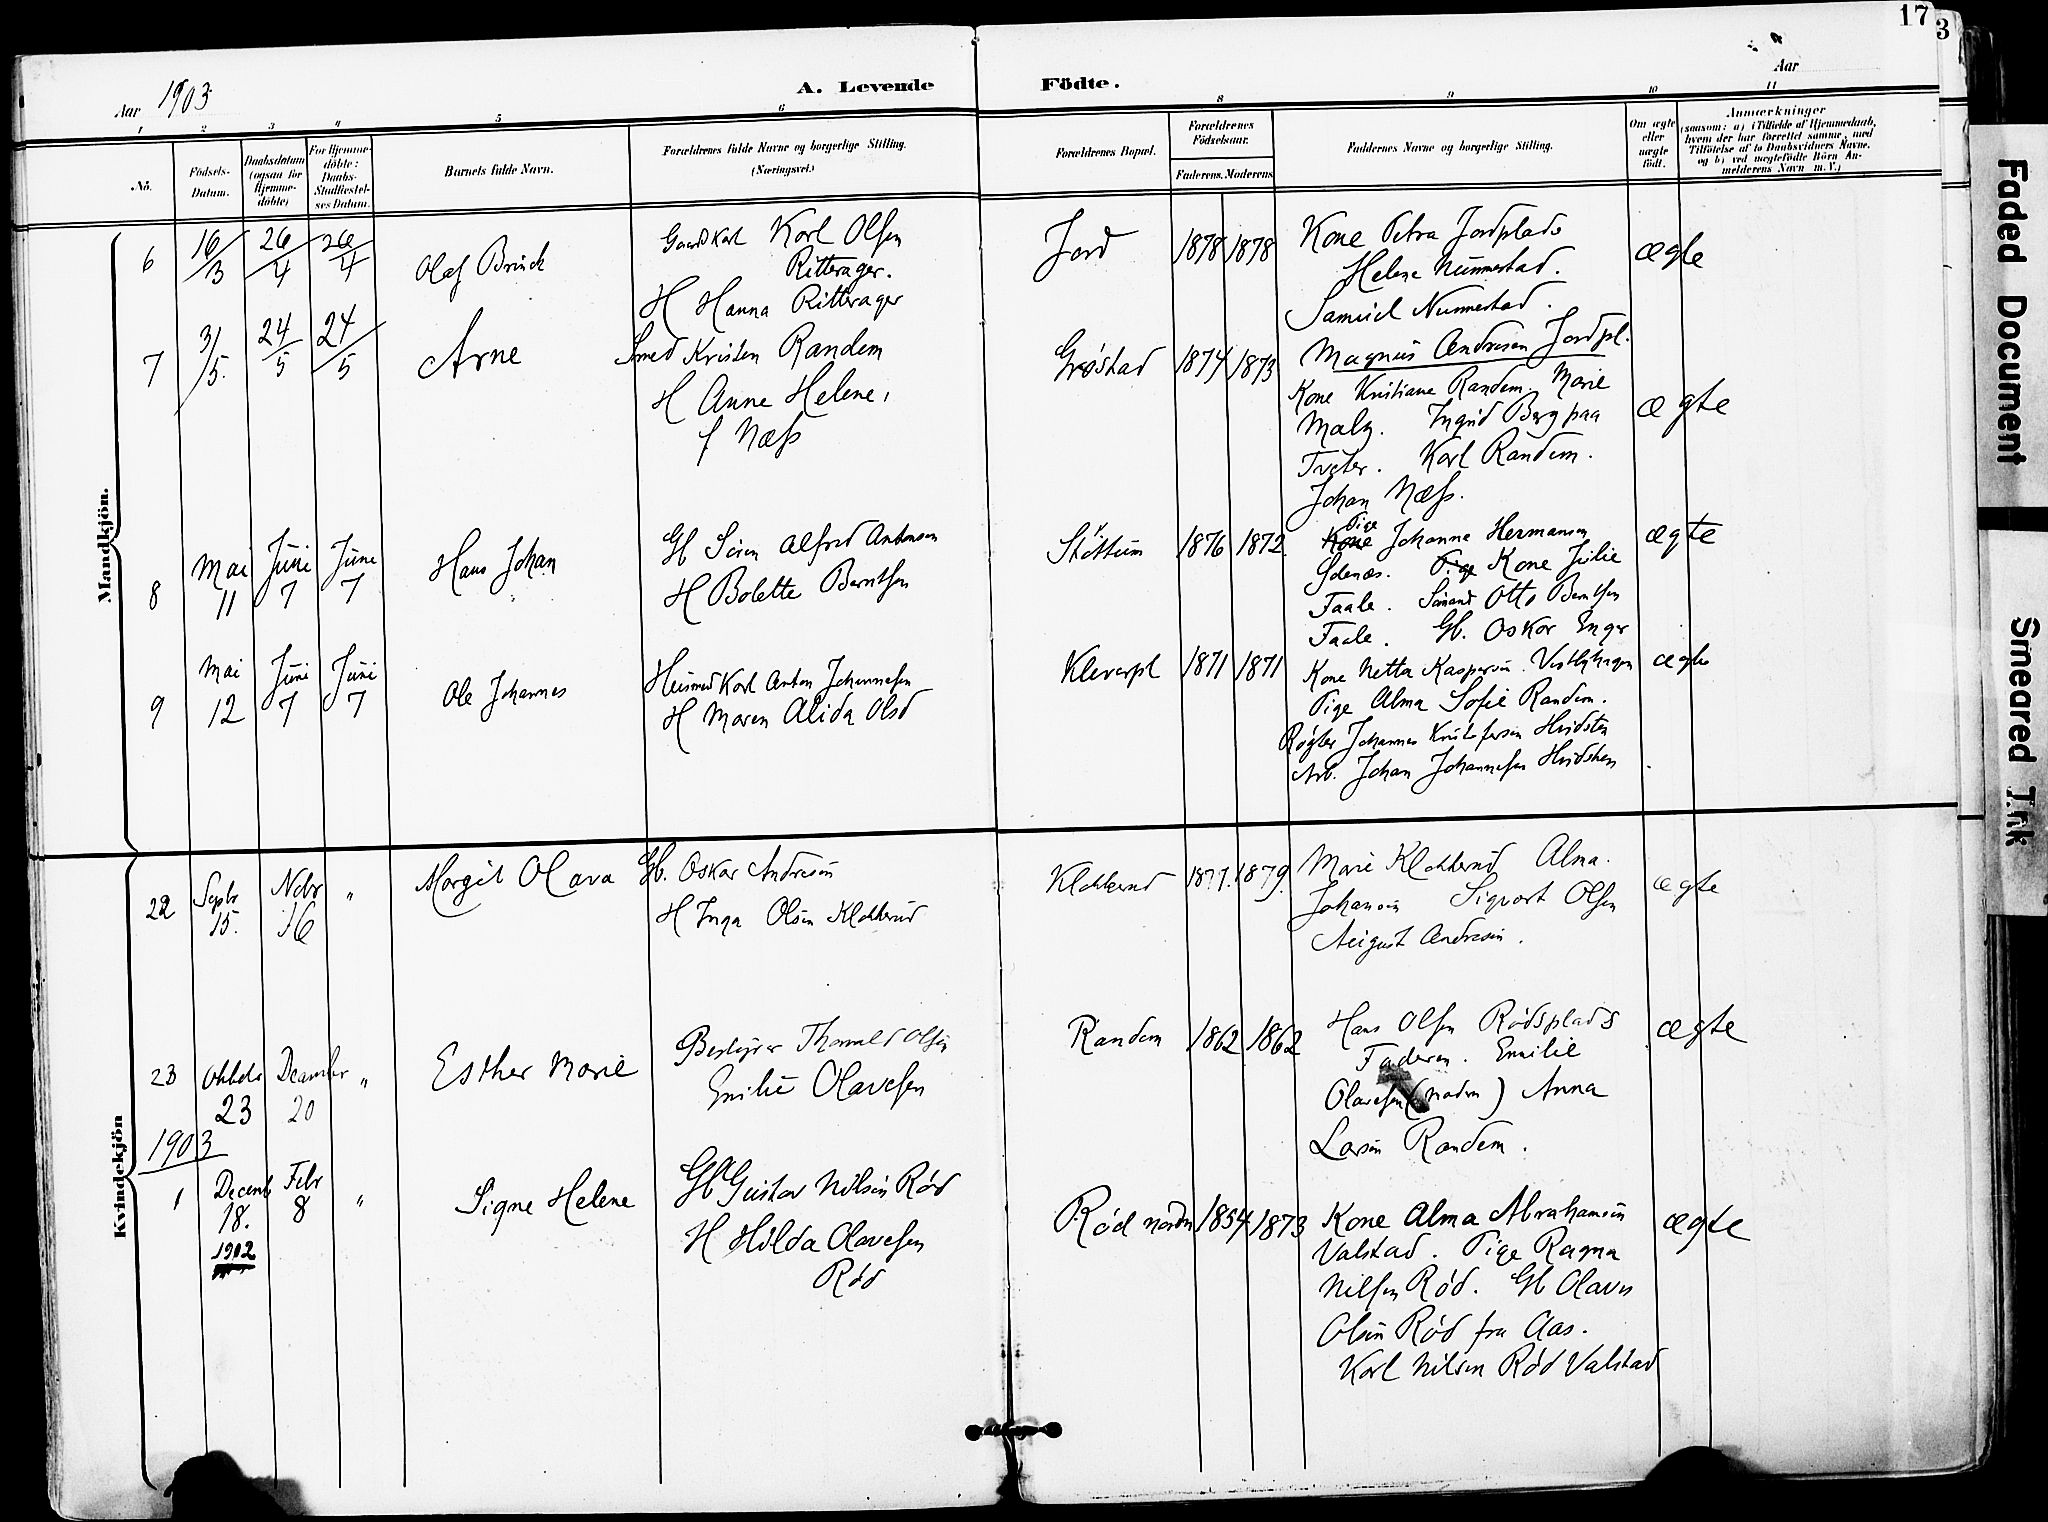 17
3
Aar 1903
A. Levende Födte.
Aar
1 2 3 4 5 6 8 9 10 11
No.
Födsels-Datum.
Daabsdatum (ogsaa for Hjemme-döbte)
For Hjemme-döbte: Daabs-Stadfæstel-ses Datum.
Barnets fulde Navn.
Forældrenes fulde Navne og borgerlige Stilling. (Næringsvei.)
Forældrenes Bopæl.
Forældrenes Födselsaar.
Faderens. Moderens
Faddernes Navne og borgerlige Stilling.
Om ægte eller uægte födt.
Anmærkninger
(saasom: a) i Tilfælde af Hjemmedaab,
hvem der har forrettet samme, med
Tilföielse af to Daabsvidners Navne,
og b) ved uægtefödte Börn An-
melderens Navn m. V.)
Mandkjön.
6 16/3 26/4 26/4 Olaf Brinck Gaardkarl Karl Olsen
Ritterager.
H Hanna Ritterager
Jord 1878 1878 Kone Petra Jordplads
Helene Nummestad.
Samuel Nummestad.
ægte
7 3/5. 24/5 24/5 Arne Smed Kristen Randem
H Anne Helene,
f Næss
Grøstad 1874 1873 Magnus Andresen Jordpl.
Kone Kristiane Randem. Marie
Maly. Ingrid Berg paa
Tveter. Karl Randem.
Johan Næss.
ægte
8 Mai 11 Juni 7 Juni 7 Hans Johan Gb Søren Alfred Antonsen
H Bolette Berntsen
Støttum 1876 1872. Pige
Kone Johanne Hermansen
Pige Kone Julie
Taale. Otto Berntsen
Taale. Gb. Oskar Enger
ægte
9 Mai 12 Juni 7 Juni 7 Ole Johannes Husmed Karl Anton Johannesen
H Maren Alida Olsd
Kleverpl 1871 1871 Kone Netta Kaspersen Vestbyhagen
Pige Alma Sofie Randem.
Røgter Johannes Kristofersen Hvidsten
Arb. Johan Johannesen Hvidsten
ægte
Kvindekjön
22 Septr 15. Nobr 16 " Margit Olava Gb. Oskar Andresen
H Inga Olsen Klokkerud
Klokkerud 1877. 1879. Marie Klokkerud Alma
Johansen Sigvart Olsen
August Andresen.
ægte
23 Oktobr 23 December 20 " Esther Marie Bestyrer Thorvald Olsen
Emilie Olavesen
Randem 1862 1862 Hans Olsen Rødsplads
Faderen. Emilie
Olavesen (Modrn) Anna
Larsen Randem.
ægte
1903
1 Decemb 18. 1902 Febr 8 " Signe Helene Gb Gustav Nilsen Rød
H Hilda Olavesen
Rød
Rød nordre 1854 1873 Kone Alma Abrahamsen
Valstad. Pige Ragna
Nilsen Rød. Gb Olaves
Olsen Rød fra Aas.
Karl Nilsen Rød Valstad
ægte
Faded Document
Smeared Ink